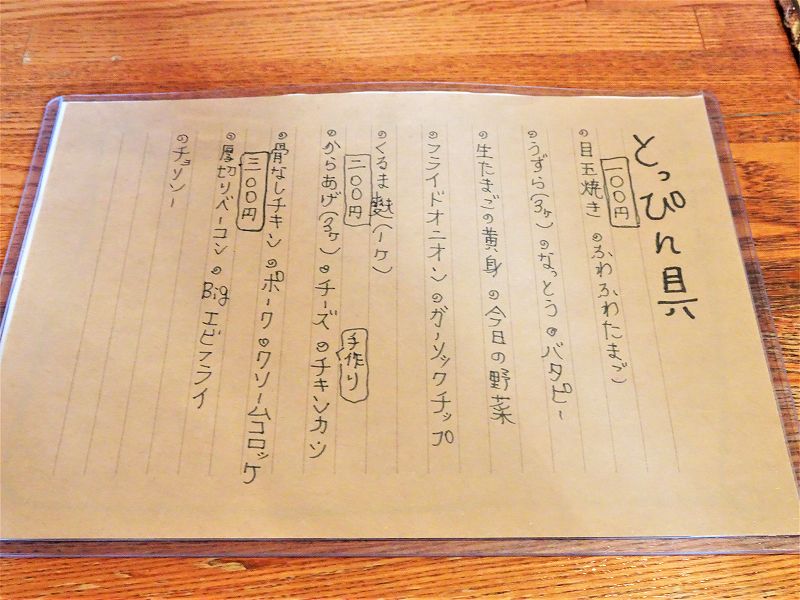 とっぴん具
一〇〇円
◎目玉焼き ◎ふわふわたまご
◎うずら(3ヶ) ◎なっとう ◎バタピー
◎生たまごの黄身 ◎今日の野菜
◎フライドオニオン ◎ガーリックチップ
◎くるま麩(1ヶ)
二〇〇円
◎からあげ(3ヶ) ◎チーズ ◎チキンカツ
手作り
◎骨なしチキン ◎ポーク ◎クリームコロッケ
三〇〇円
◎厚切りベーコン ◎Bigエビフライ
◎チョリソー